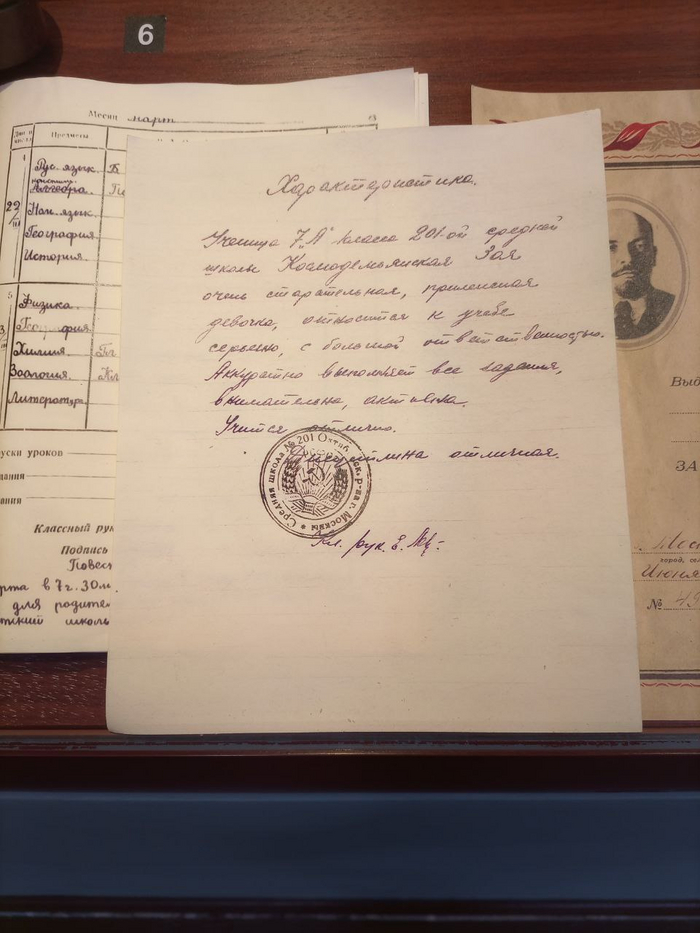 6
Месяц март
Предметы
Рус. язык. Б
Алгебра.
22
III
Нем. язык.
География
История.
Физика.
III
Химия.
Зоология.
Литератур
уски уроков
ания
ания
Классный рук
Подпись
Повес
рта в 7 г. 30 м.
для родите
тский школь
Характеристика.
Ученица 7„А" класса 201-ой средней
школы Космодемьянская Зоя
очень старательная, прилежная
девочка, относится к учебе
серьезно, с большой ответственностью.
Аккуратно выполняет все задания,
внимательна, активна.
Учится отлично.
Дисциплина отличная.
Средняя школа № 201 Октябрьск. р-на г. Москвы
Кл. рук. Е.
Выд
ЗА
город, се
Июня
№ 49